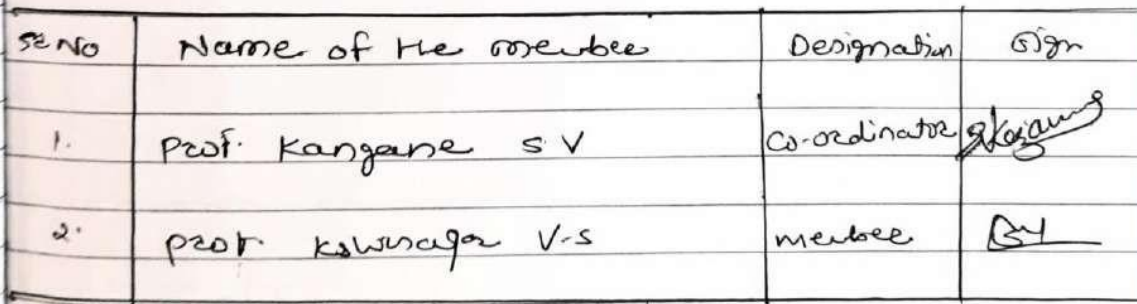 Sr No Name of the member Designation Sign
1. Prof. Kangane S V Co-ordinator
2. Prof. Kshirsagar V-S member